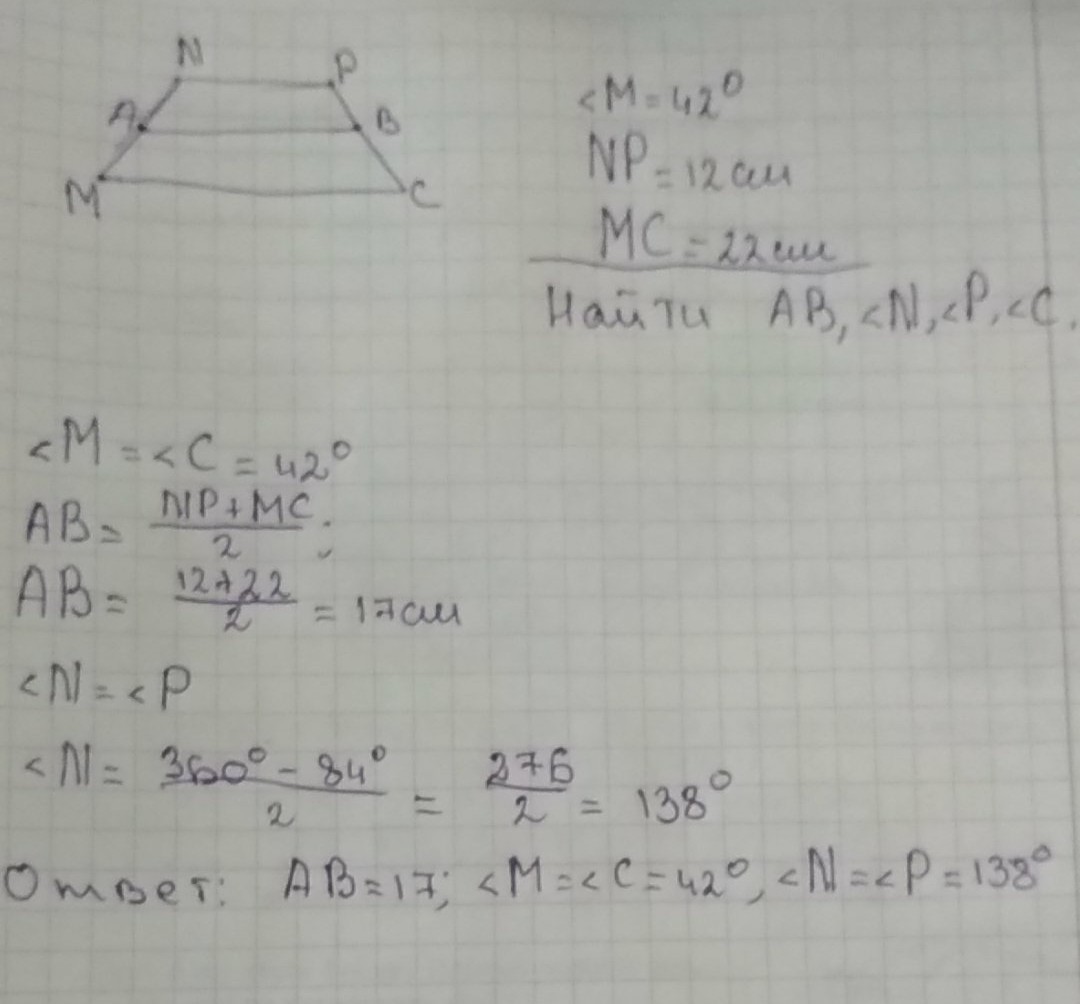 N P
A B
M C
<M=42°
NP=12см
MC=22см
Найти AB, <N, <P, <C.
<M=<C=42°
AB= NP+MC/2;
AB= 12+22/2 = 17см
<N=<P
<N= 360°-84°/2 = 276/2 = 138°
Ответ: AB=17; <M=<C=42°, <N=<P=138°